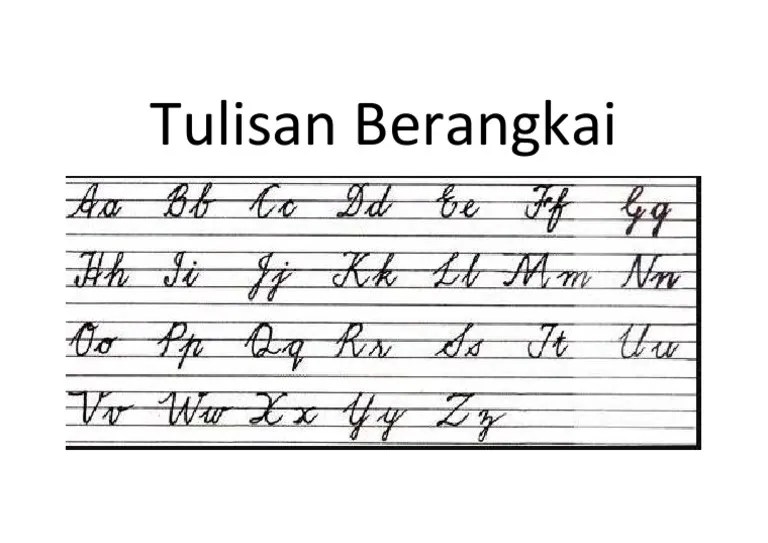 Tulisan Berangkai
Aa Bb Cc Dd Ee Ff Gg
Hh Ii Jj Kk Ll Mm Nn
Oo Pp Qq Rr Ss Tt Uu
Vv Ww Xx Yy Zz